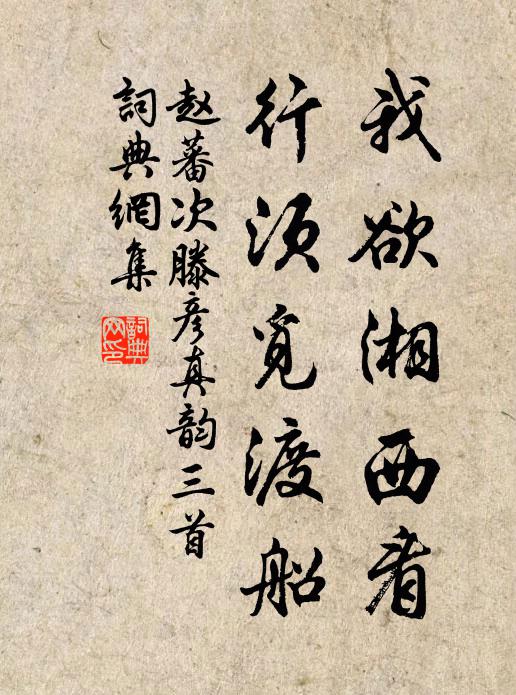 我欲湘西看
行须觅渡船
赵蕃次滕彦真韵三首
詞典網集
詞典
网印